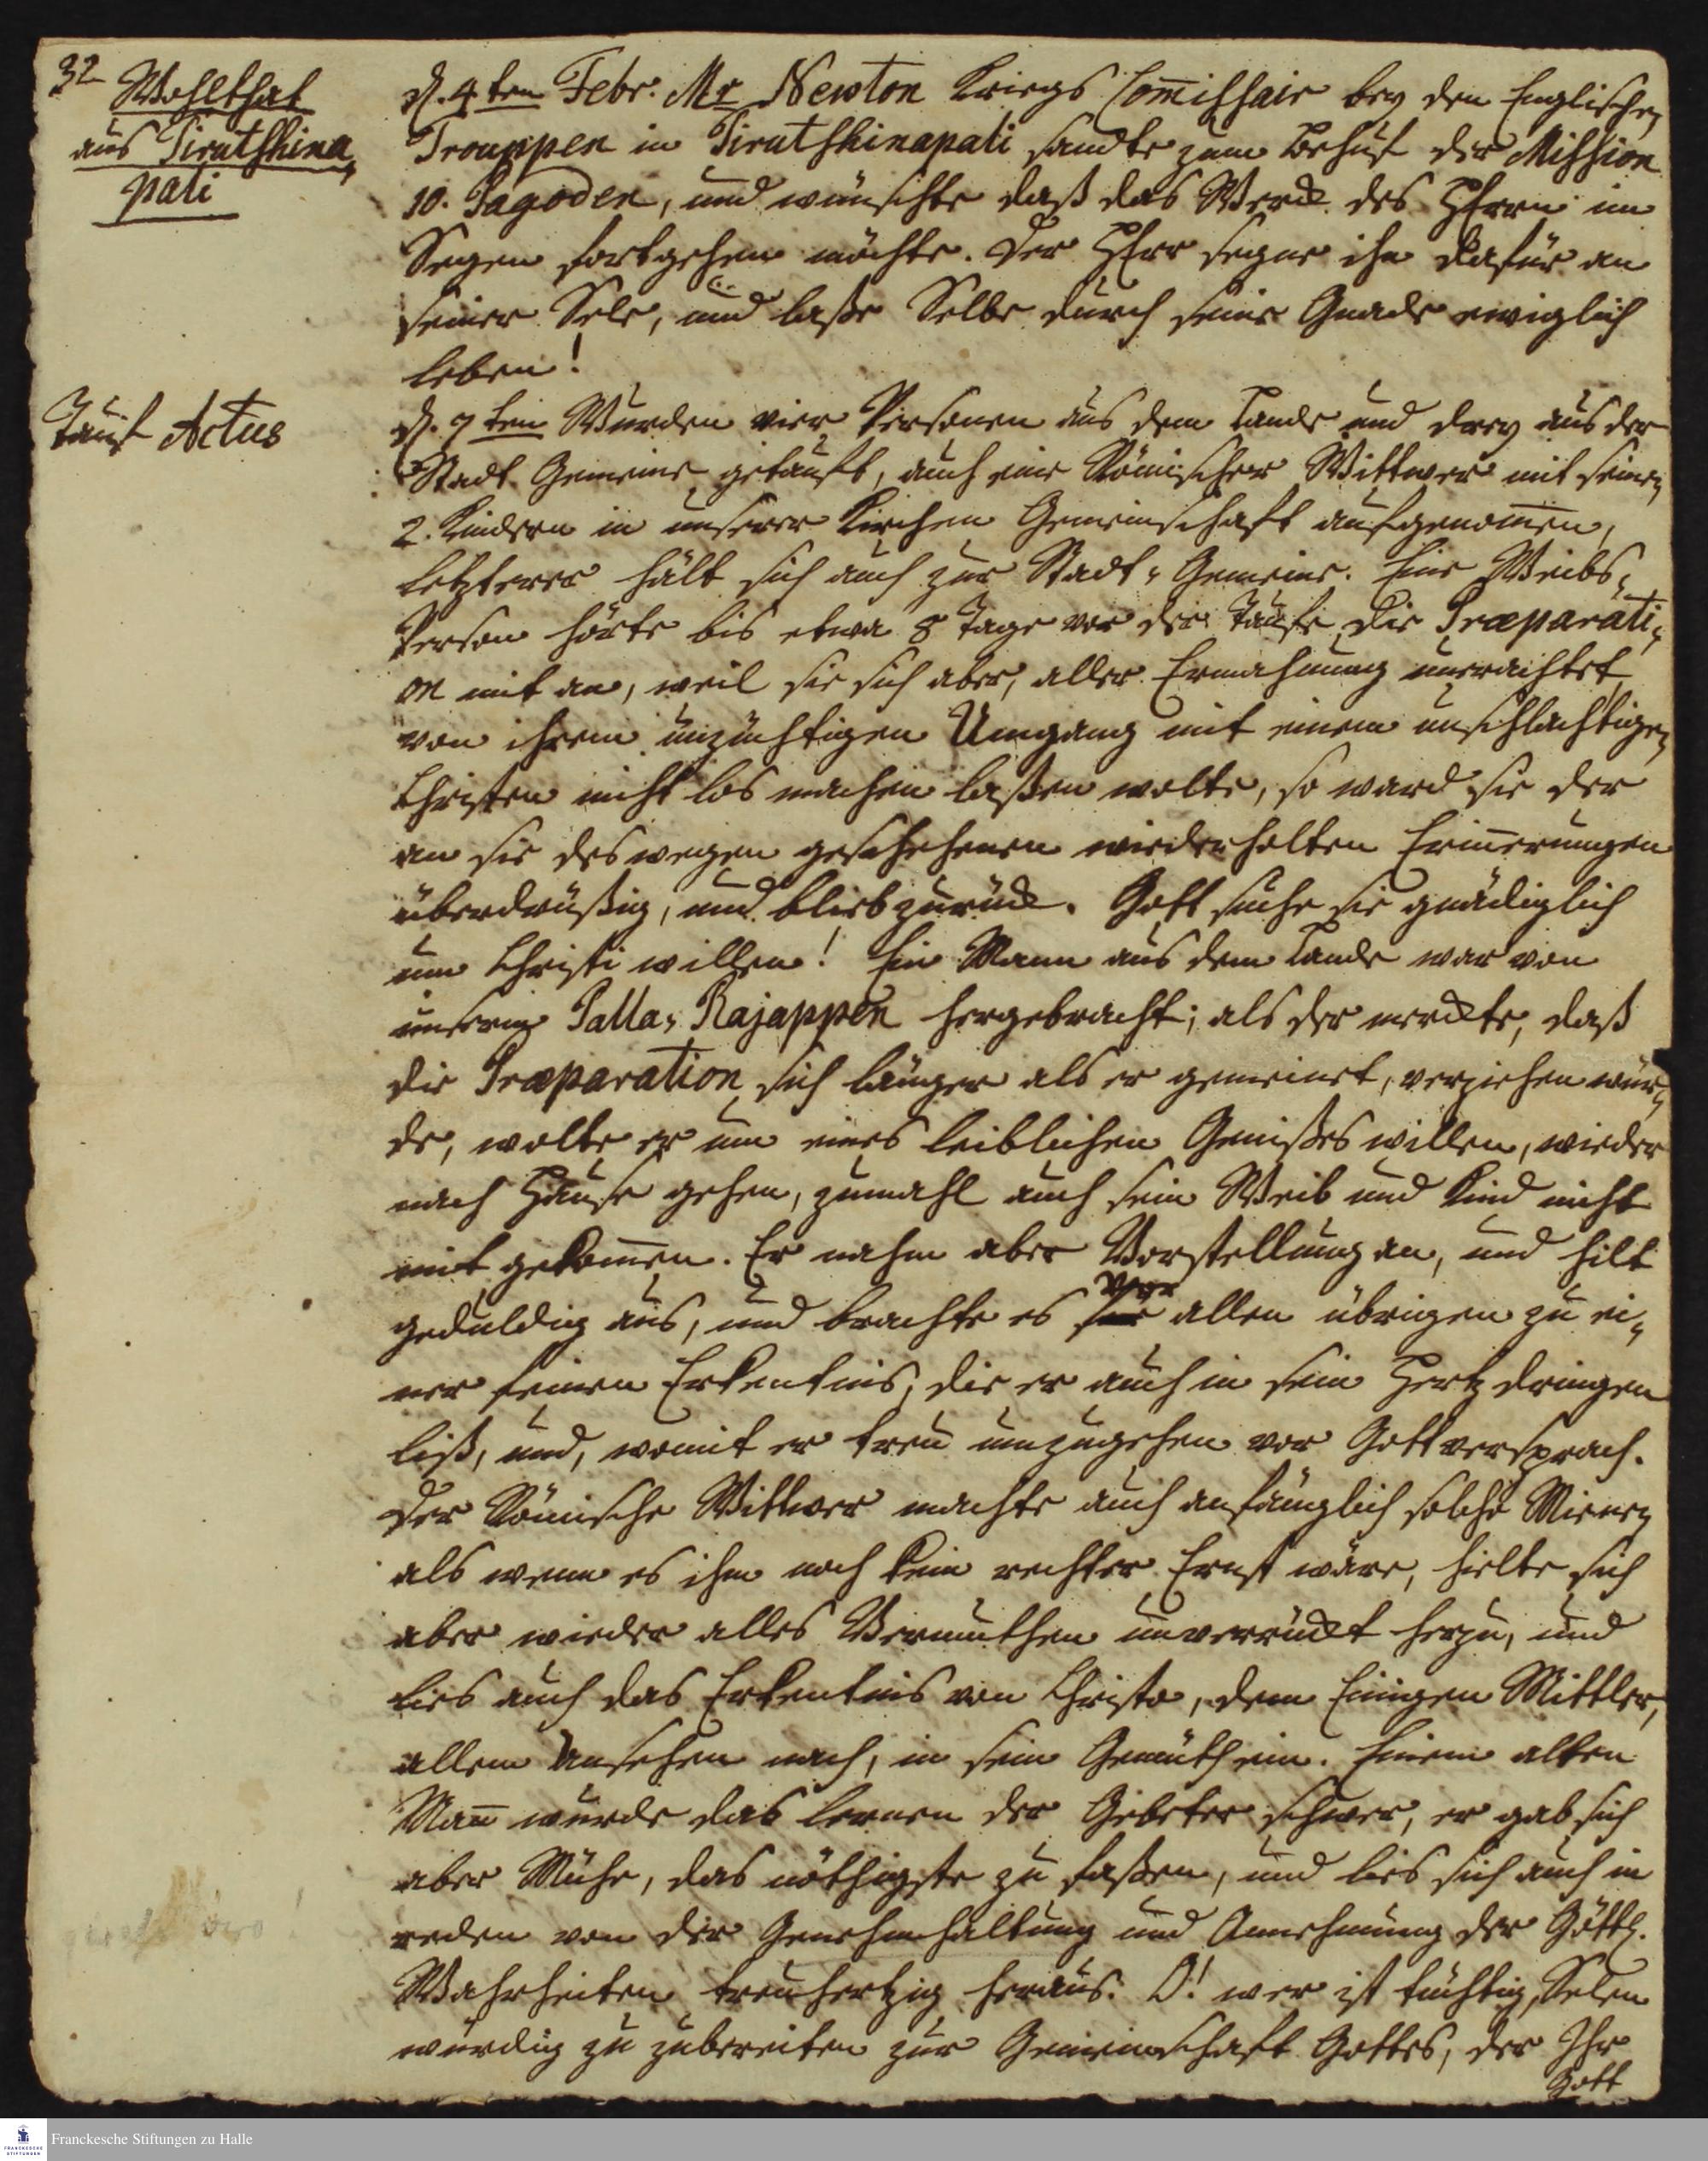 32
Wohlthat
aus Tirutshina,
pali
d. 4ten Febr. Mr Newton Kriegs Com̅issair bey den Englischen
Trouppen in Tirutshinapali sandte zum Behuf der Mission
10. Pagoden, und wünschte daß das Werck des Herrn im
Segen fortgehen möchte. Der Herr segne ihn dafür an
seiner Sele, und laße Selbe durch seine Gnade ewiglich
leben!
Tauf Actus
d. 7ten Wurden vier Personen aus dem Lande und drey aus der
Stadt Gemeine getauft, auch eine Römischer Wittwer mit seinen
2. Kindern in unserer Kirchen Gemeinschaft aufgenom̅en,
letzterer hält sich auch zur Stadt-Gemeine. Eine Weibs-
Person hörte bis etwa 8 Tage vor der Taufe die Præparati-
on mit an, weil sie sich aber, aller Ermahnung unerachtet,
von ihrem unzüchtigen Umgang mit einem unschlachtigen
Christen nicht los machen laßen wolte, so ward sie der
an sie deswegen geschehenen wiederholten Erin̅erungen
überdrüßig, und blieb zurück. Gott suche sie gnädiglich
um Christi willen! Ein Mann aus dem Lande war von
unserm Palla-Rajappen hergebracht; als der merckte, daß
die Præparation sich länger als er gemeinet, verziehen wür-
de, wolte er um eines leiblichen Genißes willen, wieder
nach Hause gehen, zumahl auch sein Weib und Kind nicht
mit gekom̅en. Er nahm aber Vorstellung an, und hilt
geduldig aus, und brachte es vor allen übrigen zu ei-
ner feinen Erkentnis, die er auch in sein Hertz dringen
liß, und, womit er treu umzugehen vor Gott versprach.
Der Römische Wittwer machte auch anfänglich solche Mienen
als wenn es ihm noch kein rechter Ernst wäre, hielte sich
aber wieder alles Vermuthen unverrückt herzu, und
lies auch das Erkentnis von Christo, dem Einigen Mittler,
allem Ansehen nach, in sein Gemüth ein. Einem alten
Man̅ wurde das lernen der Gebeter schwer, er gab sich
aber Mühe, das nöthigste zu faßen, und lies sich auch in
reden von der Genehmhaltung und Annehmung der Göttl.
Wahrheiten treuhertzig heraus. O! wer ist tüchtig, Selen
würdig zu zubereiten zur Gemeinschaft Gottes, der Ihr
Gott
Franckesche Stiftungen zu Halle
FRANCKESCHE
STIFTUNGEN